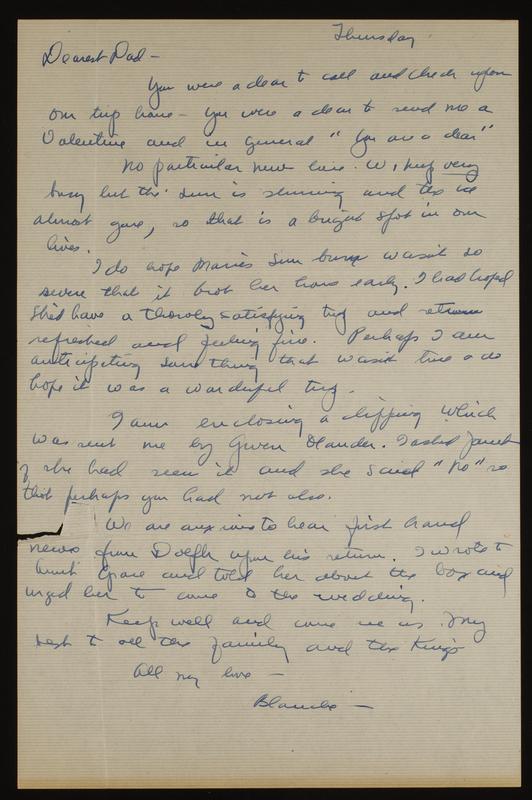 Thursday
Dearest Dad -
You were a dear to call and check upon
our trip home - you were a dear to send me a
Valentine and in general "You are a dear"
No particular news here. We, keep very
busy but the sun is shining and the ice
almost gone, so that is a bright spot in our
lives.
I do hope Marie's sun burn wasn't so
severe that it brot her home early. I had hoped
she'd have a thoroly satisfying trip and return
refreshed and feeling fine. Perhaps I am
anticipating something that wasn't true & do
hope it was a wonderful trip.
I am enclosing a clipping which
was sent me by Gwen. I asked Janet
if she had seen it and she said "No" so
that perhaps you had not also.
We are anxious to hear first hand
news from Dolph upon his return. I wrote to
Aunt Grace and told her about the box and
urged her to come to the wedding.
Keep well and come see us. My
best to all the family and the Kings
All my love -
Blanche -